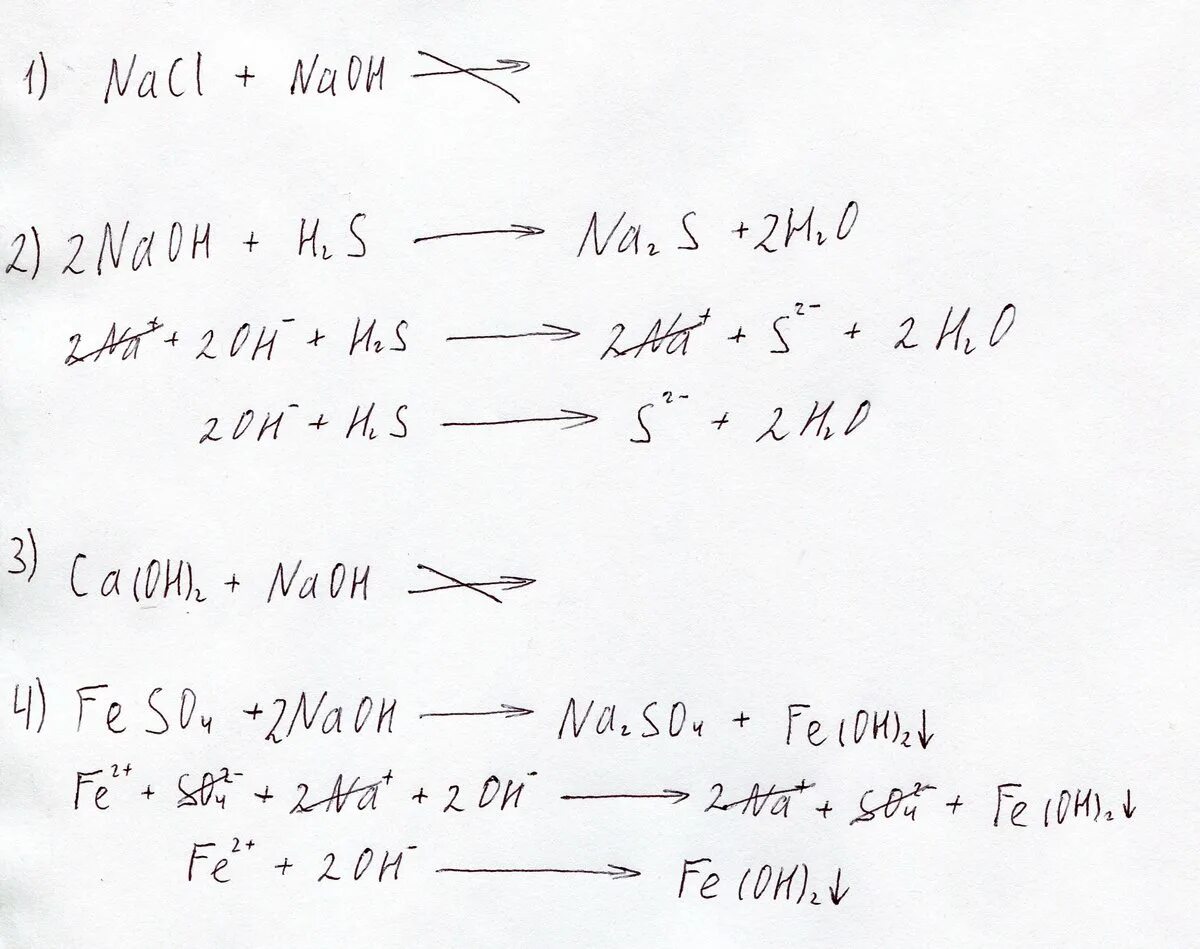 1) NaCl + NaOH ↛
2) 2NaOH + H₂S → Na₂S + 2H₂O
2Na⁺ + 2OH⁻ + H₂S → 2Na⁺ + S²⁻ + 2H₂O
2OH⁻ + H₂S → S²⁻ + 2H₂O
3) Ca(OH)₂ + NaOH ↛
4) FeSO₄ + 2NaOH → Na₂SO₄ + Fe(OH)₂↓
Fe²⁺ + SO₄²⁻ + 2Na⁺ + 2OH⁻ → 2Na⁺ + SO₄²⁻ + Fe(OH)₂↓
Fe²⁺ + 2OH⁻ → Fe(OH)₂↓